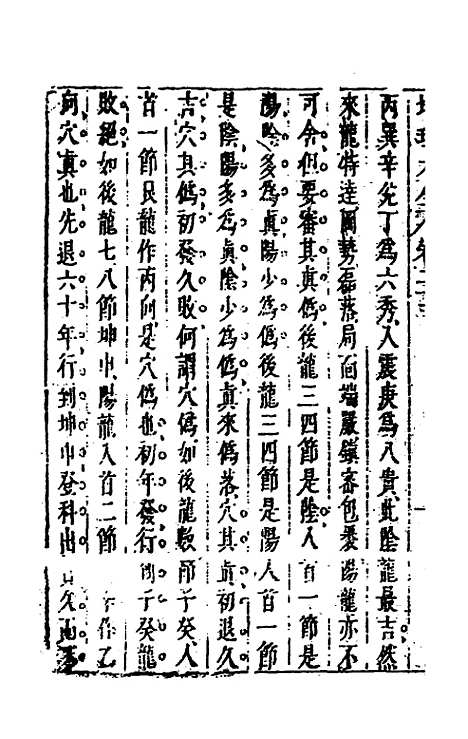 丙巽辛兊丁爲六秀入震庚爲八貴此陰龍最吉然
來龍特達局勢磊落局面端嚴鎭審包裹陽龍亦不
可舍但要審其真僞後龍三四節是陰入首一節是
陽陰多爲真陽少爲僞後龍三四節是陽入首一節
是陰陽多爲真陰少爲僞真來僞落穴其真初退久
吉穴其僞初發久敗何謂穴僞如後龍數節子癸入
首一節艮龍作丙向是穴僞也初年發行 子癸龍
敗絕如後龍七八節坤申陽龍入首二節 作乙
向穴真也先退六十年行到坤申登科出 久而